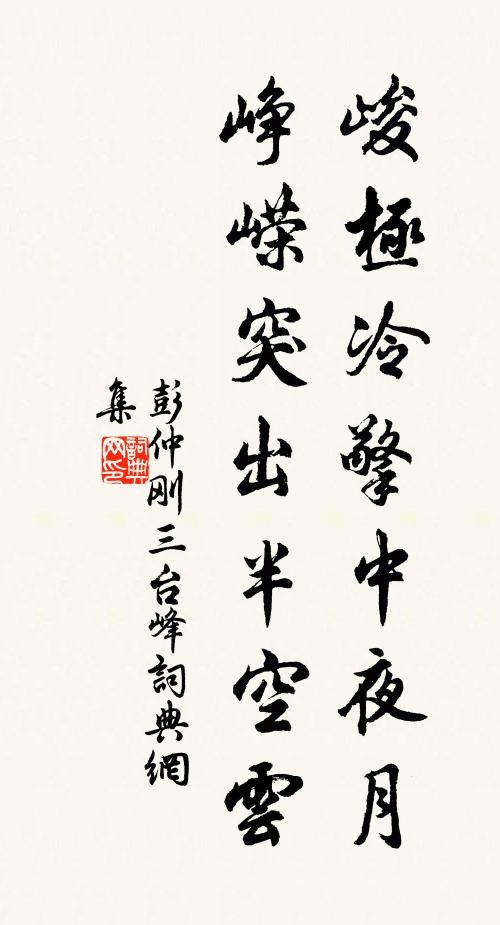 峻極冷擎中夜月
峥嶸突出半空雲
彭仲刚三台峰詞典網
集
詞典网印